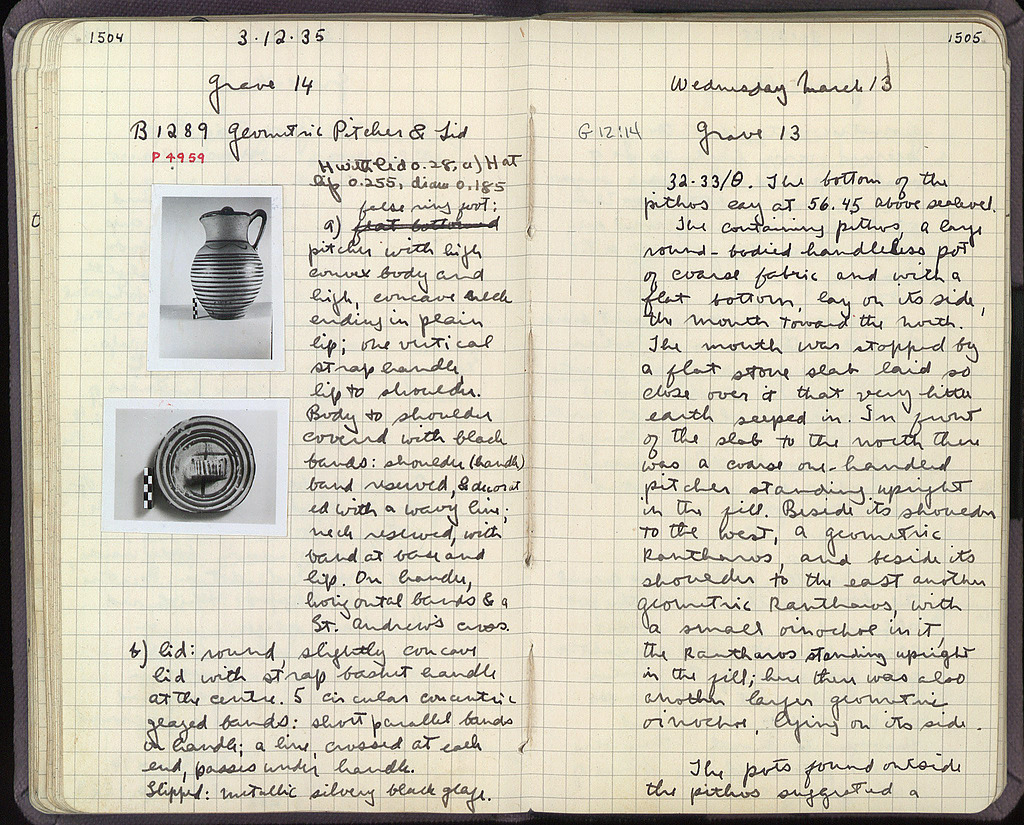 1504
3·12·35
Grave 14
B 1289 Geometric Pitcher & Lid
P 4959
H with lid 0.28, a) H at
lip 0.255, diam 0.185
false ring foot;
a) flat bottomed
pitcher with high
convex body and
high, concave neck
ending in plain
lip; one vertical
strap handle,
lip to shoulder.
Body to shoulder
covered with black
bands: shoulder (handle)
band reserved, & decorat
ed with a wavy line;
neck reserved, with
band at base and
lip. On handle,
horizontal bands & a
St. Andrew's cross.
b) lid: round, slightly concave
lid with strap basket handle
at the centre. 5 circular concentric
glazed bands: short parallel bands
on handle; a line, crossed at each
end, passes under handle.
Slipped: metallic silvery black glaze.
t
1505
Wednesday March 13
G 12:14
Grave 13
32-33/Θ. The bottom of the
pithos lay at 56.45 above sealevel.
The containing pithos, a large
round-bodied handleless pot
of coarse fabric and with a
flat bottom, lay on its side,
the mouth toward the north.
The mouth was stopped by
a flat stone slab laid so
close over it that very little
earth seeped in. In front
of the slab to the north there
was a coarse one-handled
pitcher standing upright
in the fill. Beside its shoulder
to the west, a geometric
kantharos, and beside its
shoulder to the east another
geometric kantharos, with
a small oinochoe in it,
the kantharos standing upright
in the fill; here there was also
another larger geometric
oinochoe, lying on its side.
The pots found outside
the pithos suggested a